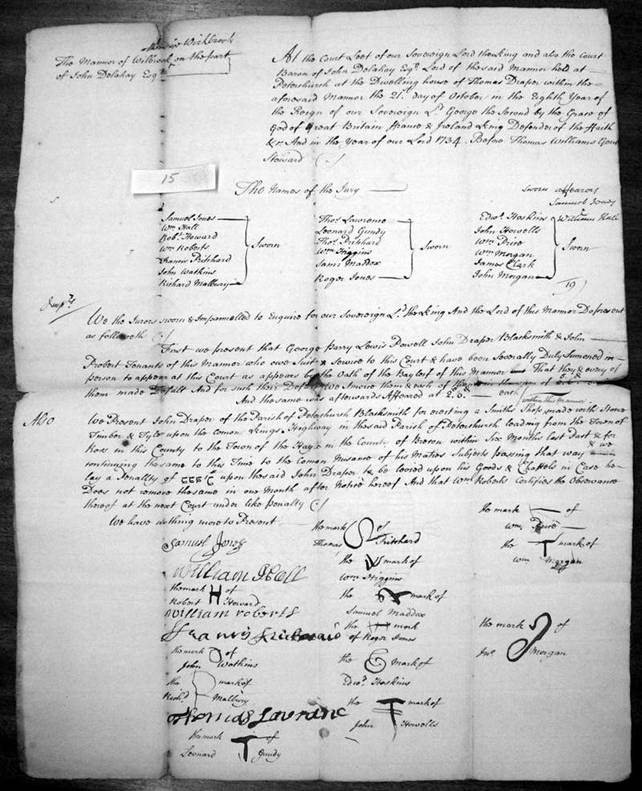 The Mannor of Wilbrook on the part
of John Delahay Esqr
At the Court Leet of our Sovereign Lord the King and also the Court
Baron of John Delahay Esqr Lord of the said Mannor held at
Peterchurch at the Dwelling house of Thomas Draper within the
aforesaid Mannor the 21st day of October in the Eighth Year of
the Reign of our Sovereign Ld George the Second by the Grace of
God of Great Britain France & Ireland King Defender of the Faith
&c And in the Year of our Lord 1734. Before Thomas Williams Gent
Steward
15
The Names of the Jury
Sworn Afearors
Samuel Jones
William Hall
Samuel Jones
Wm Hall
Robt Howard
Wm Roberts
Francis Pritchard
John Watkins
Richard Mallwry
Sworn
Thos Lawrence
Leonard Gundy
Thos Pritchard
Wm Higgins
Saml Maddox
Roger Jones
Sworn
Edwd Hoskins
John Howells
Wm Price
Wm Morgan
James Clark
John Morgan
Sworn
19
We the Jurors sworn & Impannelled to Enquire for our Sovereign Ld the King And the Lord of this Mannor Do present
as followeth
First we present that George Parry Lewis Powell John Draper Blacksmith & John
Probert Tenants of this Mannor who owe Suit & Service to this Court & have been Severally Duly Sumoned in
person to appear at this Court as appears by the Oath of the Bayliff of this Mannor That they & every of
them made Default And for such their Default We Amerce them & each of them in the sum of
And the same was afterwards Affeared at 2.6. each
within this Mannor
Also
We Present John Draper of the Parish of Peterchurch Blacksmith for erecting a Smiths Shop made with Stone
Timber & Tyles upon the Comon Kings Highway in the said Parish of Peterchurch leading from the Town of
Ross in this County to the Town of the Hay in the County of Brecon within Six Months last past & for
continuing the same to this Time to the Comon Nusance of his Maties Subjects passing that way & we
lay a Penalty of upon the said John Draper to be levied upon his Goods & Chattels in Case he
Does not remove the same in one Month after Notice hereof And that Wm Roberts certifies the Observance
thereof at the next Court under like penalty
We have nothing more to Present
Samuel Jones
William Hall
the mark H of
Robert Howard
William roberts
Francis Prichard
the mark of
John Watkins
the mark of
Richd Mallwry
Thomas Lawranc
the mark T of
Leonard Gundy
the mark of
Thomas Pritchard
the mark of
Wm Higgins
the mark of
Samuel Maddox
the mark
of Roger Jones
the mark of
Edwd Hoskins
the T mark of
John Howells
the mark of
Wm Price
the T mark of
Wm Morgan
the mark of
Jno Morgan